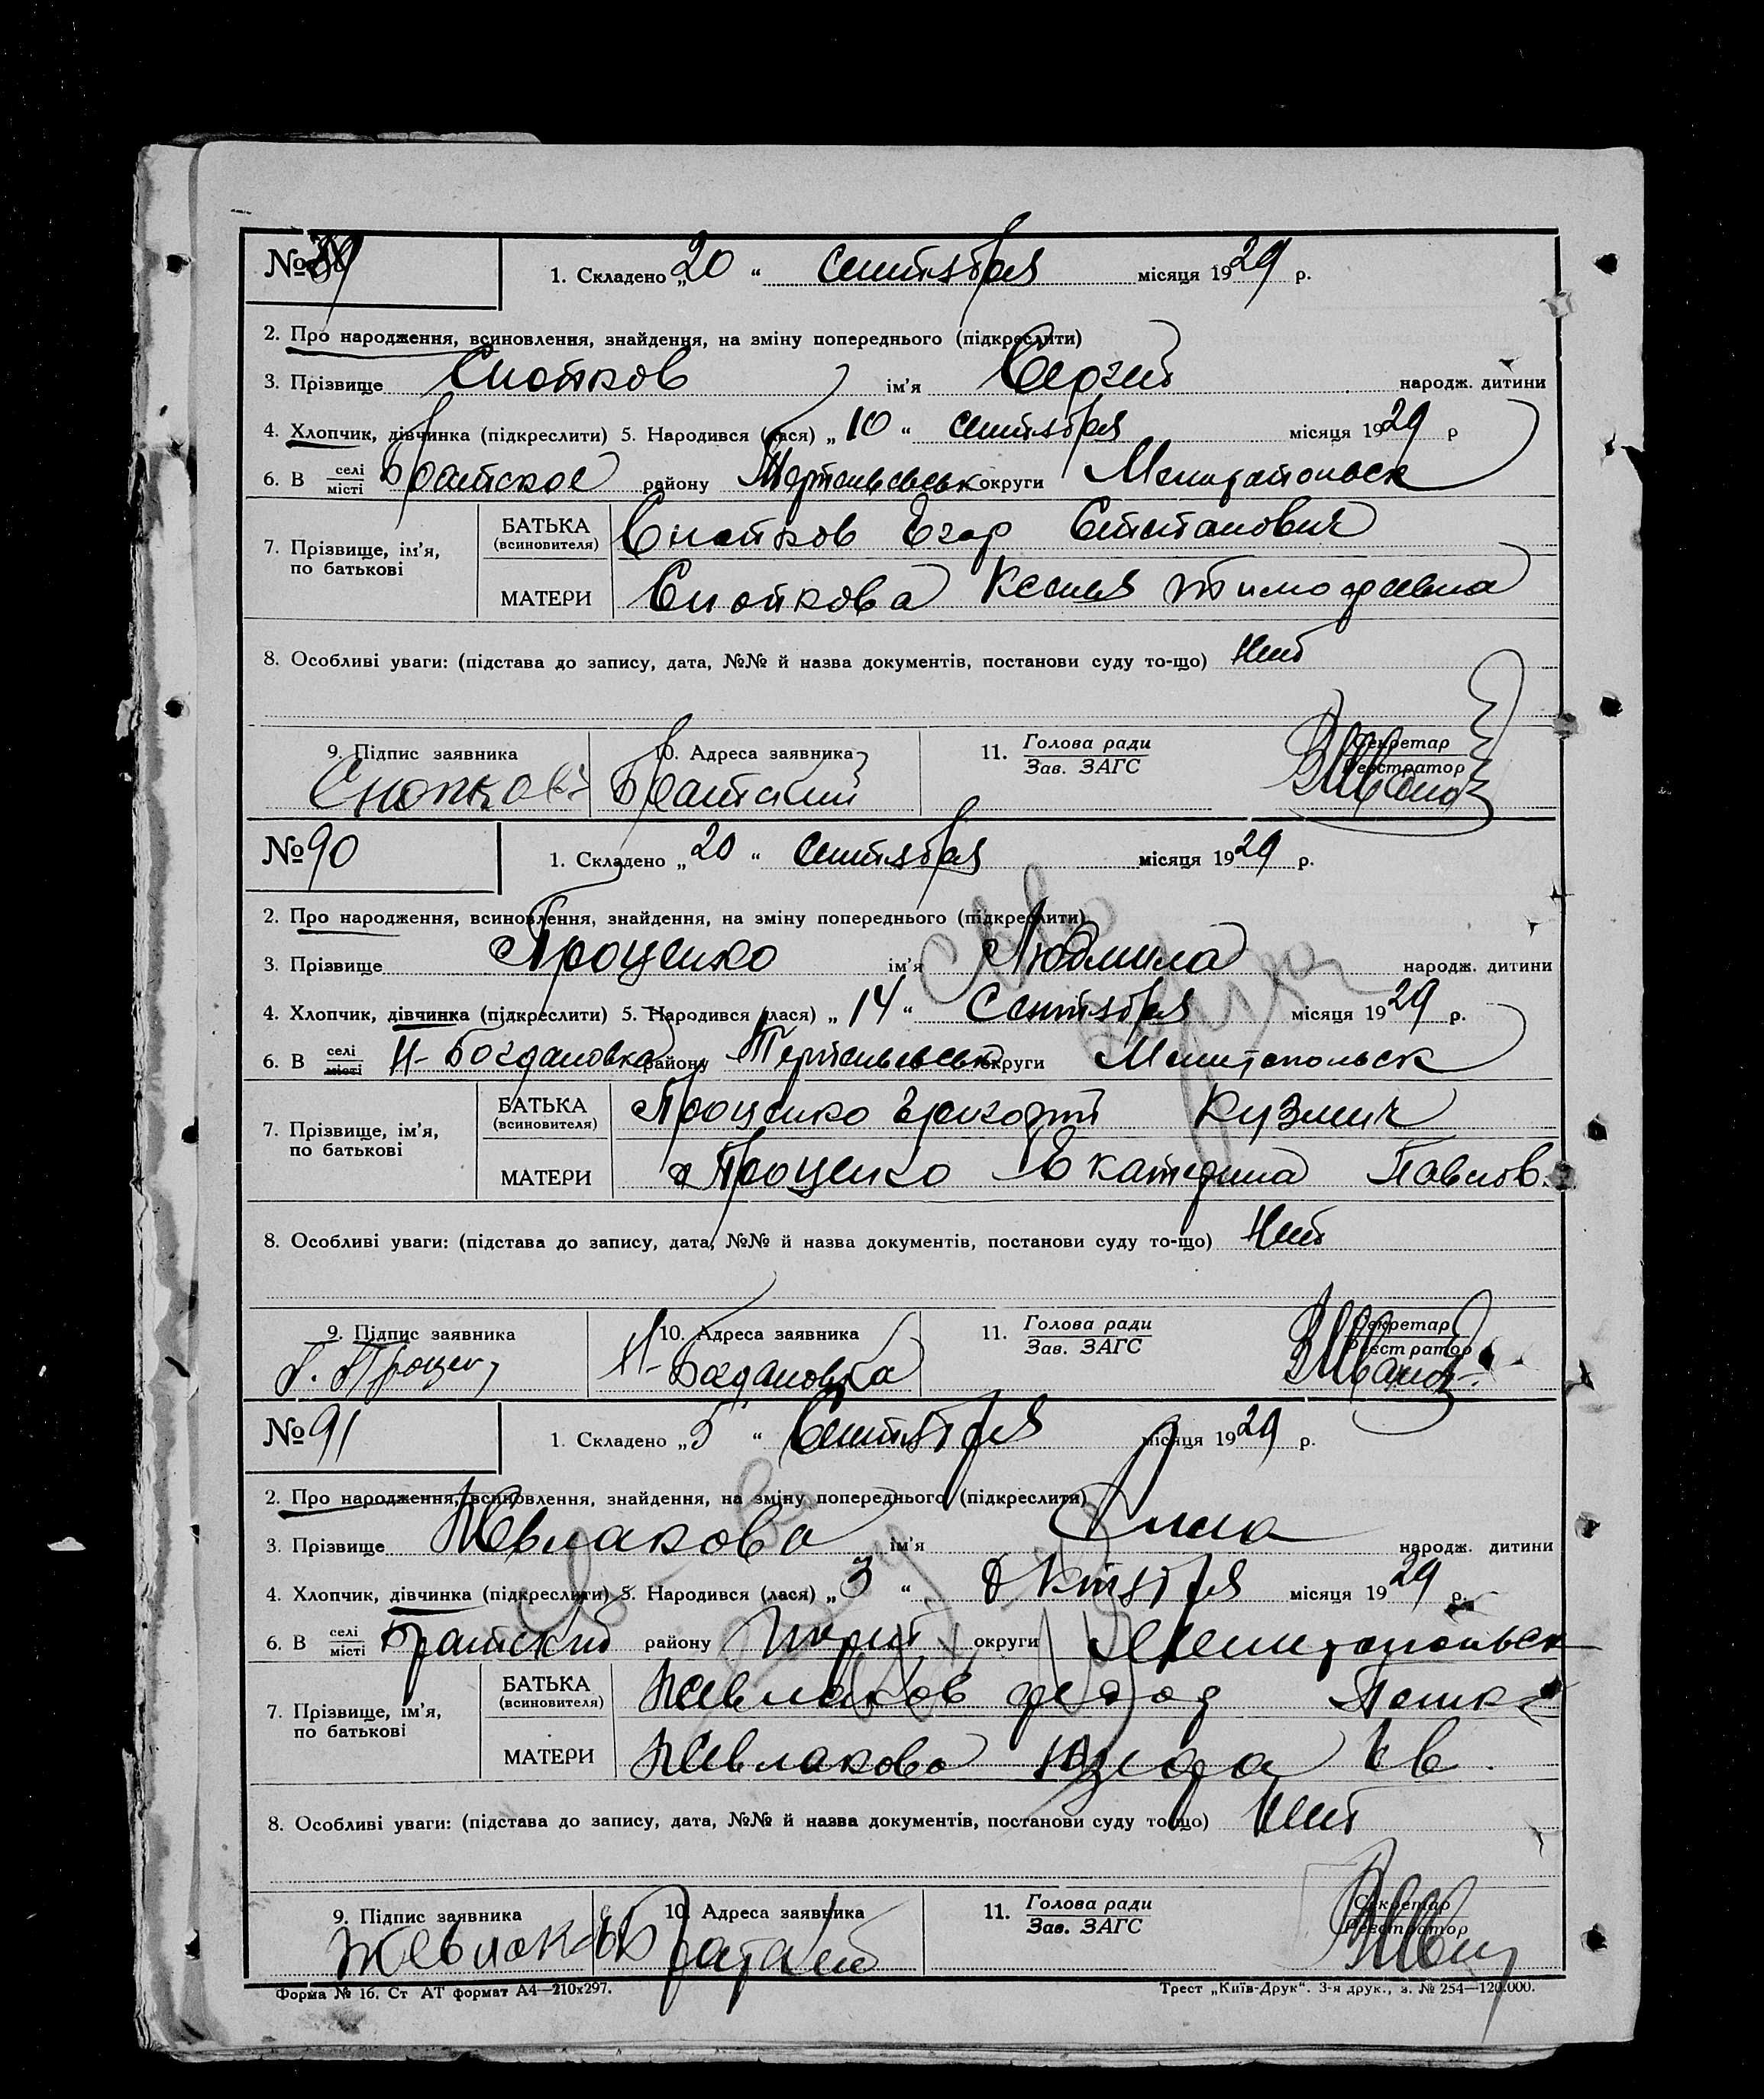 № 89 1. Складено „20“ сентября місяця 1929 р.
2. Про народження, всиновлення, знайдення, на зміну попереднього (підкреслити)
3. Прізвище Снопков ім'я Сергей народж. дитини
4. Хлопчик, дівчинка (підкреслити) 5. Народився (лася) „10“ сентября місяця 1929 р
6. В селі/місті Братское району округи Мелитопольск
7. Прізвище, ім'я, по батькові
БАТЬКА (всиновителя) Снопков Егор Степанович
МАТЕРИ Снопкова Ксения Тимофеевна
8. Особливі уваги: (підстава до запису, дата, №№ й назва документів, постанови суду то-що) Нет
9. Підпис заявника 10. Адреса заявника 11. Голова ради Секретар
Зав. ЗАГС Реєстратор
Снопков Братский
№ 90 1. Складено „20“ сентября місяця 1929 р.
2. Про народження, всиновлення, знайдення, на зміну попереднього (підкреслити)
3. Прізвище Проценко ім'я Людмила народж. дитини
4. Хлопчик, дівчинка (підкреслити) 5. Народився (лася) „14“ Сентября місяця 1929 р.
6. В селі/місті Н-Богдановка району округи Мелитопольск
7. Прізвище, ім'я, по батькові
БАТЬКА (всиновителя) Проценко Григорий Кузмич
МАТЕРИ Проценко Екатерина Павлов.
8. Особливі уваги: (підстава до запису, дата, №№ й назва документів, постанови суду то-що) Нет
9. Підпис заявника 10. Адреса заявника 11. Голова ради Секретар
Зав. ЗАГС Реєстратор
Г. Процен Н-Богдановка
№ 91 1. Складено „5“ Сентября місяця 1929 р.
2. Про народження, всиновлення, знайдення, на зміну попереднього (підкреслити)
3. Прізвище Жевлакова ім'я народж. дитини
4. Хлопчик, дівчинка (підкреслити) 5. Народився (лася) „3“ Октября місяця 1929 р.
6. В селі/місті Братский району округи Мелитопольск
7. Прізвище, ім'я, по батькові
БАТЬКА (всиновителя) Жевлаков Федор
МАТЕРИ Жевлакова Ив.
8. Особливі уваги: (підстава до запису, дата, №№ й назва документів, постанови суду то-що) Нет
9. Підпис заявника 10. Адреса заявника 11. Голова ради Секретар
Зав. ЗАГС Реєстратор
Жевлаков Братский
Форма № 16. Ст АТ формат А4—210x297. Трест „Київ-Друк“. 3-я друк., з. № 254—120.000.